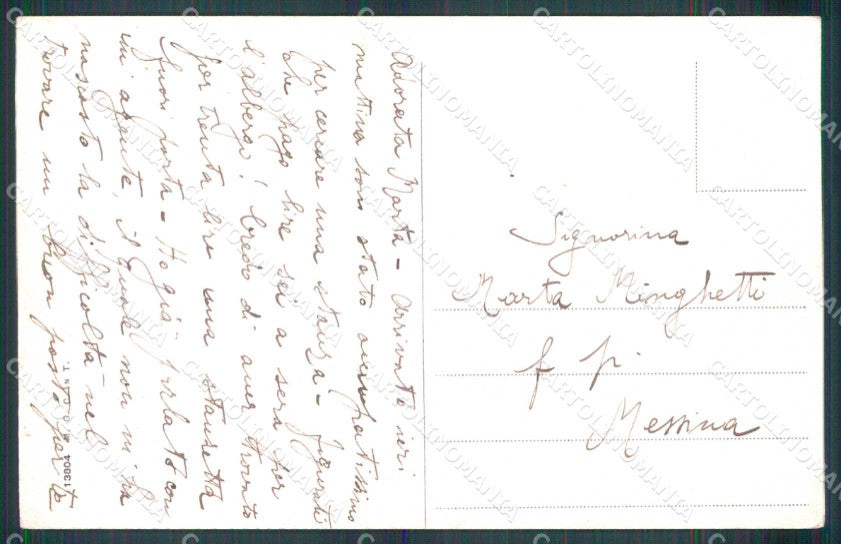 Adorata Marta - Arrivato ieri
mattina sono stato occupatissimo
per cercare una stanza - Figurati
che pago lire sei a sera per
l'albergo! Credo di aver trovato
per trenta lire una stanzetta
fuori porta - Ho già parlato con
mi agente, il quale non mi ha
nascosto la difficoltà nel
trovare un buon posto per te
Signorina
Marta Minghetti
f p.
Messina
13804
CARTOLINOMANIA